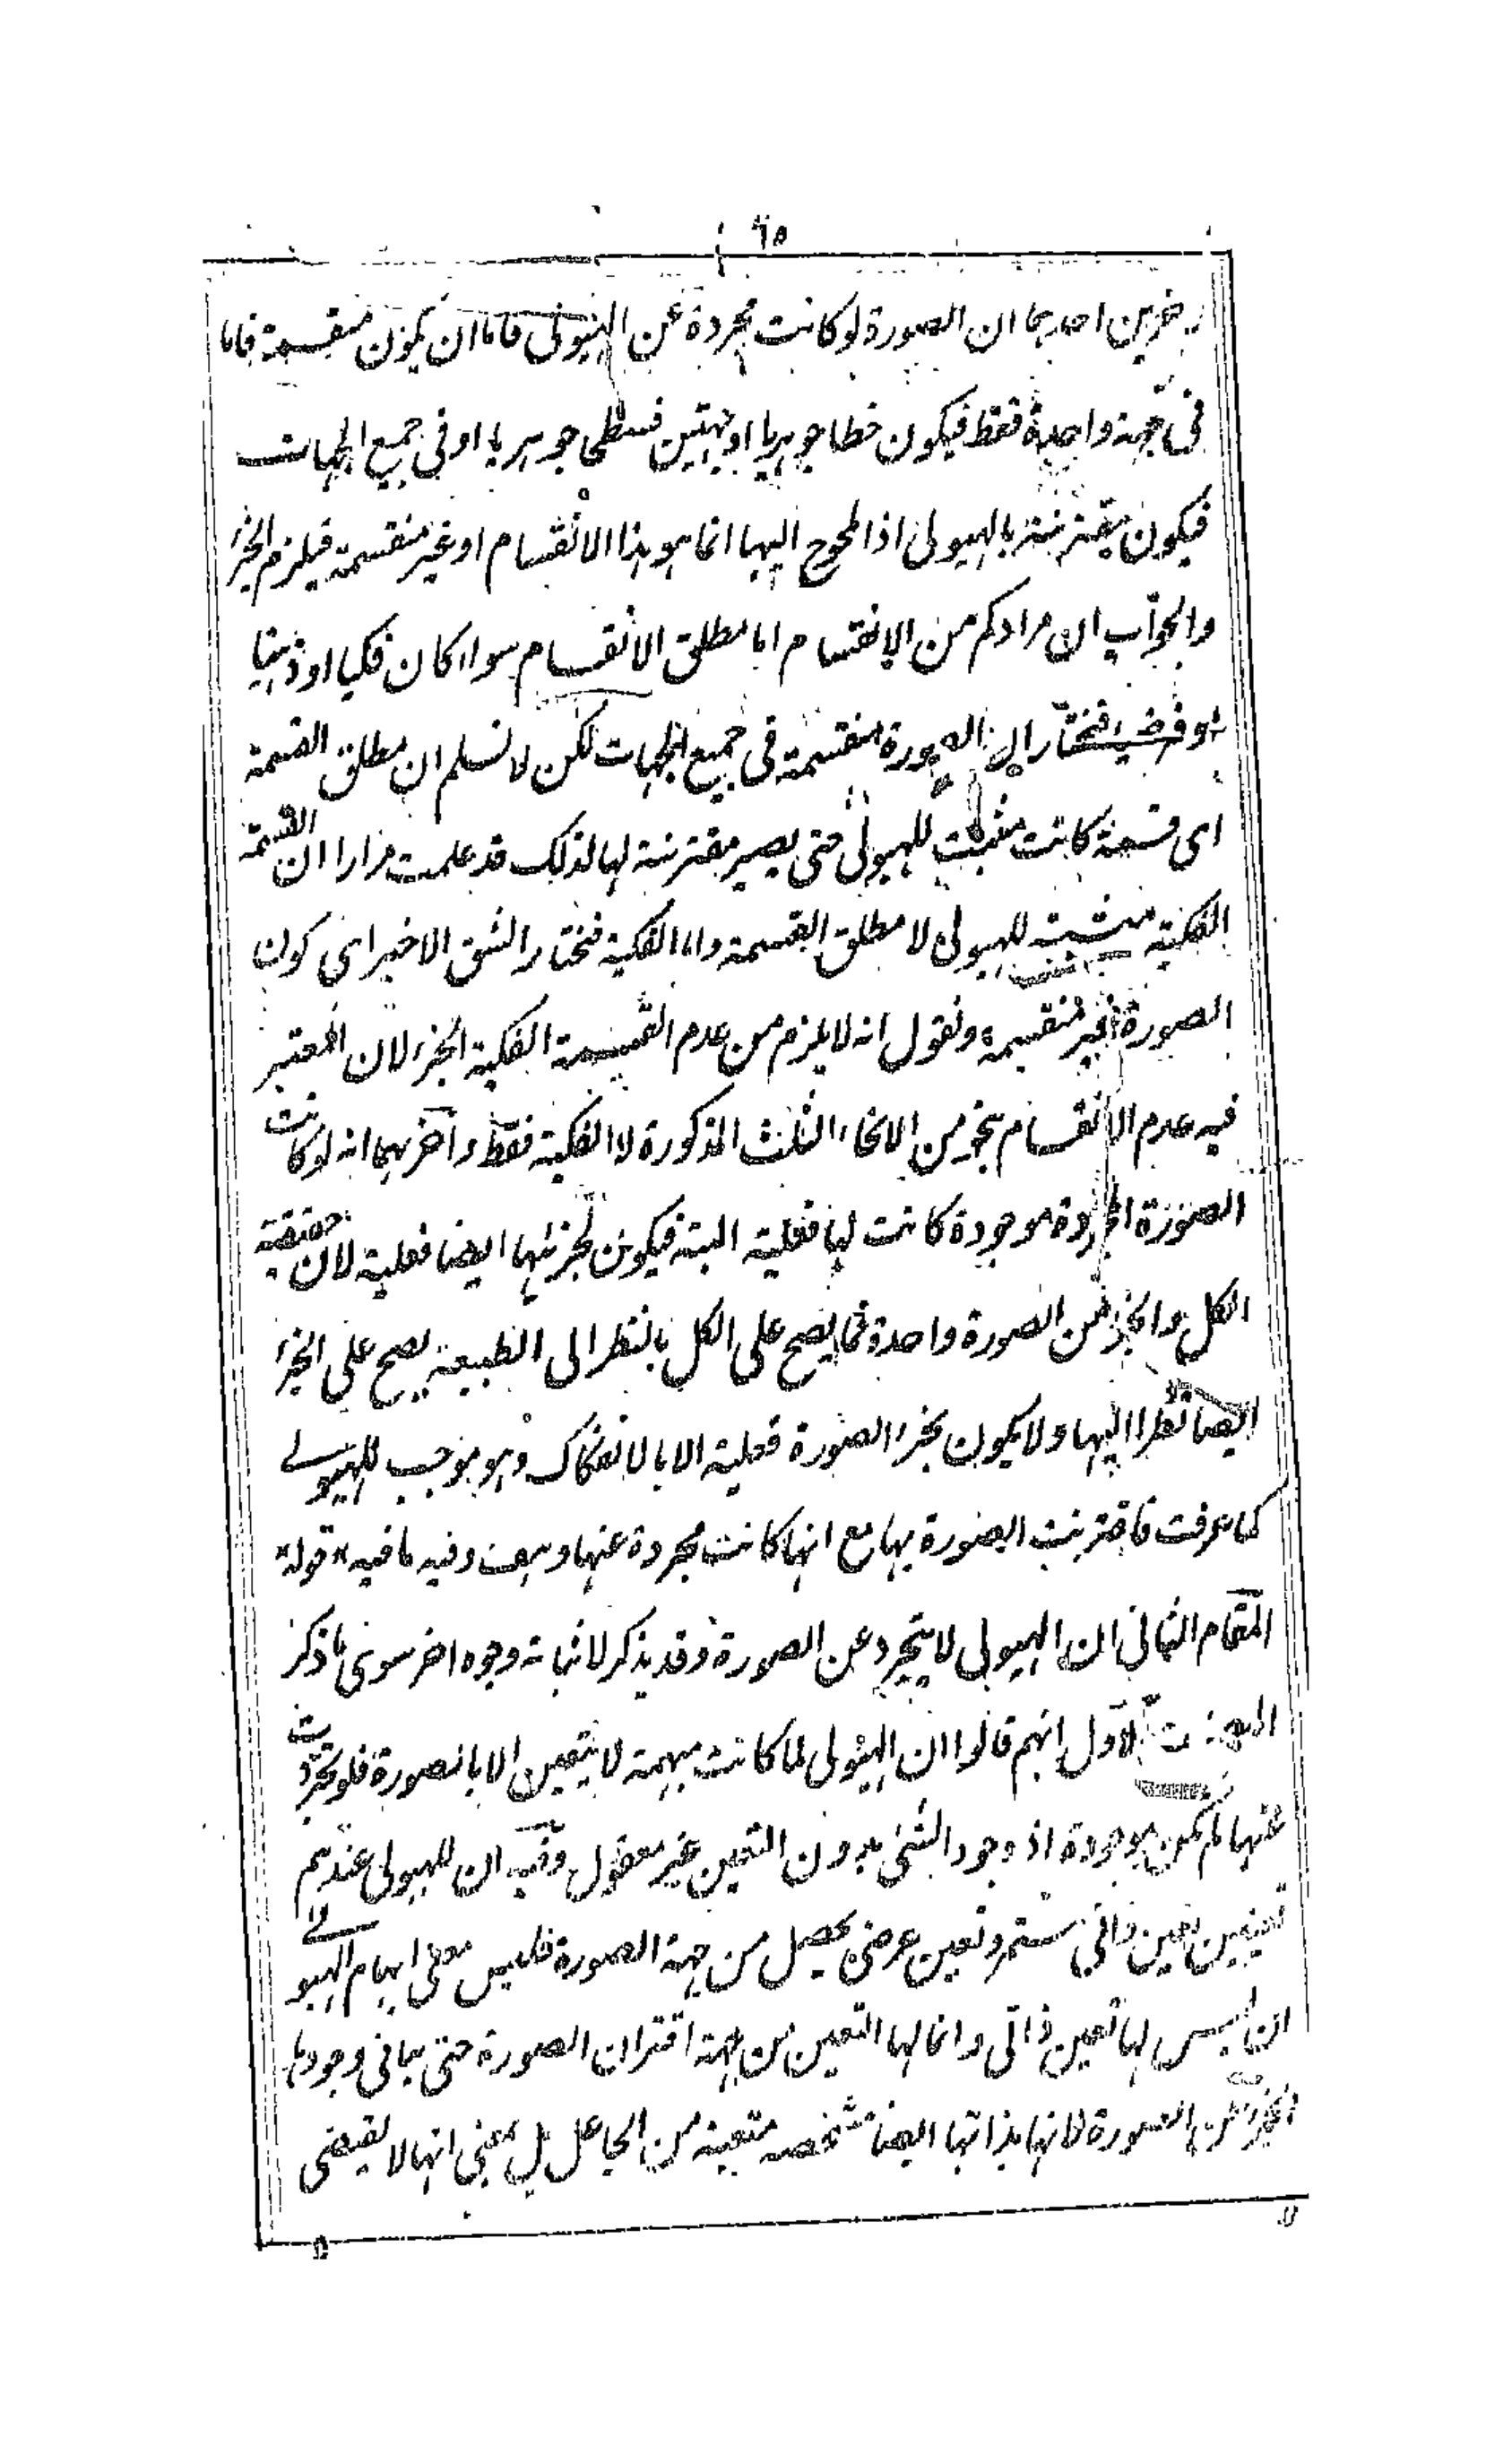 ٦٥
اخريين احدهما ان الصورة لو كانت مجردة عن الهيولى فاما ان يكون منقسمة فاما
فى جهة واحدة فقط فيكون خطا جوهريا او جهتين فسطحى جوهريا او فى جميع الجهات
فيكون مقترنة بالهيولى اذ المحوج اليها انما هو هذا الانقسام او غير منقسمة فيلزم الجزء
والجواب ان مرادكم من الانقسام اما مطلق الانقسام سواء كان فكيا او ذهنيا
او فرضيا فنختار ان الصورة منقسمة فى جميع الجهات لكن لا نسلم ان مطلق القسمة
اى قسمة كانت مثبت للهيولى حتى يصير مقترنة لها لذلك قد علمت مرارا ان القسمة
الفكية مثبتة للهيولى لا مطلق القسمة واما الفكية فنختار الشق الاخير اى كون
الصورة غير منقسمة ونقول انه لا يلزم من عدم القسمة الفكية الجزء لان المعتبر
فيه عدم الانقسام بنحو من الانحاء الثلث المذكورة لا الفكية فقط وآخريهما انه لو كانت
الصورة المجردة موجودة كانت لها فعلية البتة فيكون لجزئيها ايضا فعلية لان حقيقة
الكل والجزء من الصورة واحدة فما يصح على الكل بالنظر الى الطبيعة يصح على الجزء
ايضا نظرا اليها ولا يكون بجزء الصورة فعلية الا بالانفكاك وهو موجب للهيولى
كما عرفت فاقترنت الصورة بها مع انها كانت مجردة عنها وهف وفيه ما فيه * قوله *
المقام الثانى ان الهيولى لا يتجرد عن الصورة وقد يذكر لاثباته وجوه اخر سوى ما ذكر
الاول انهم قالوا ان الهيولى لما كانت مبهمة لا يتعين الا بالصورة فلو تجردت
عنها لم يكن موجودة اذ وجود الشئ بدون التعين غير معقول وفيه ان للهيولى عندهم
تعينين تعين ذاتى مستمر وتعين عرضى يحصل من جهة الصورة فليس معنى ابهام الهيولى
ان ليس لها تعين ذاتى وانما لها التعين من جهة اقتران الصورة حتى ينافى وجودها
الصورة فانها بذاتها ايضا مشخصه متعينة من الجاعل بل بمعنى انها لا يقتضى